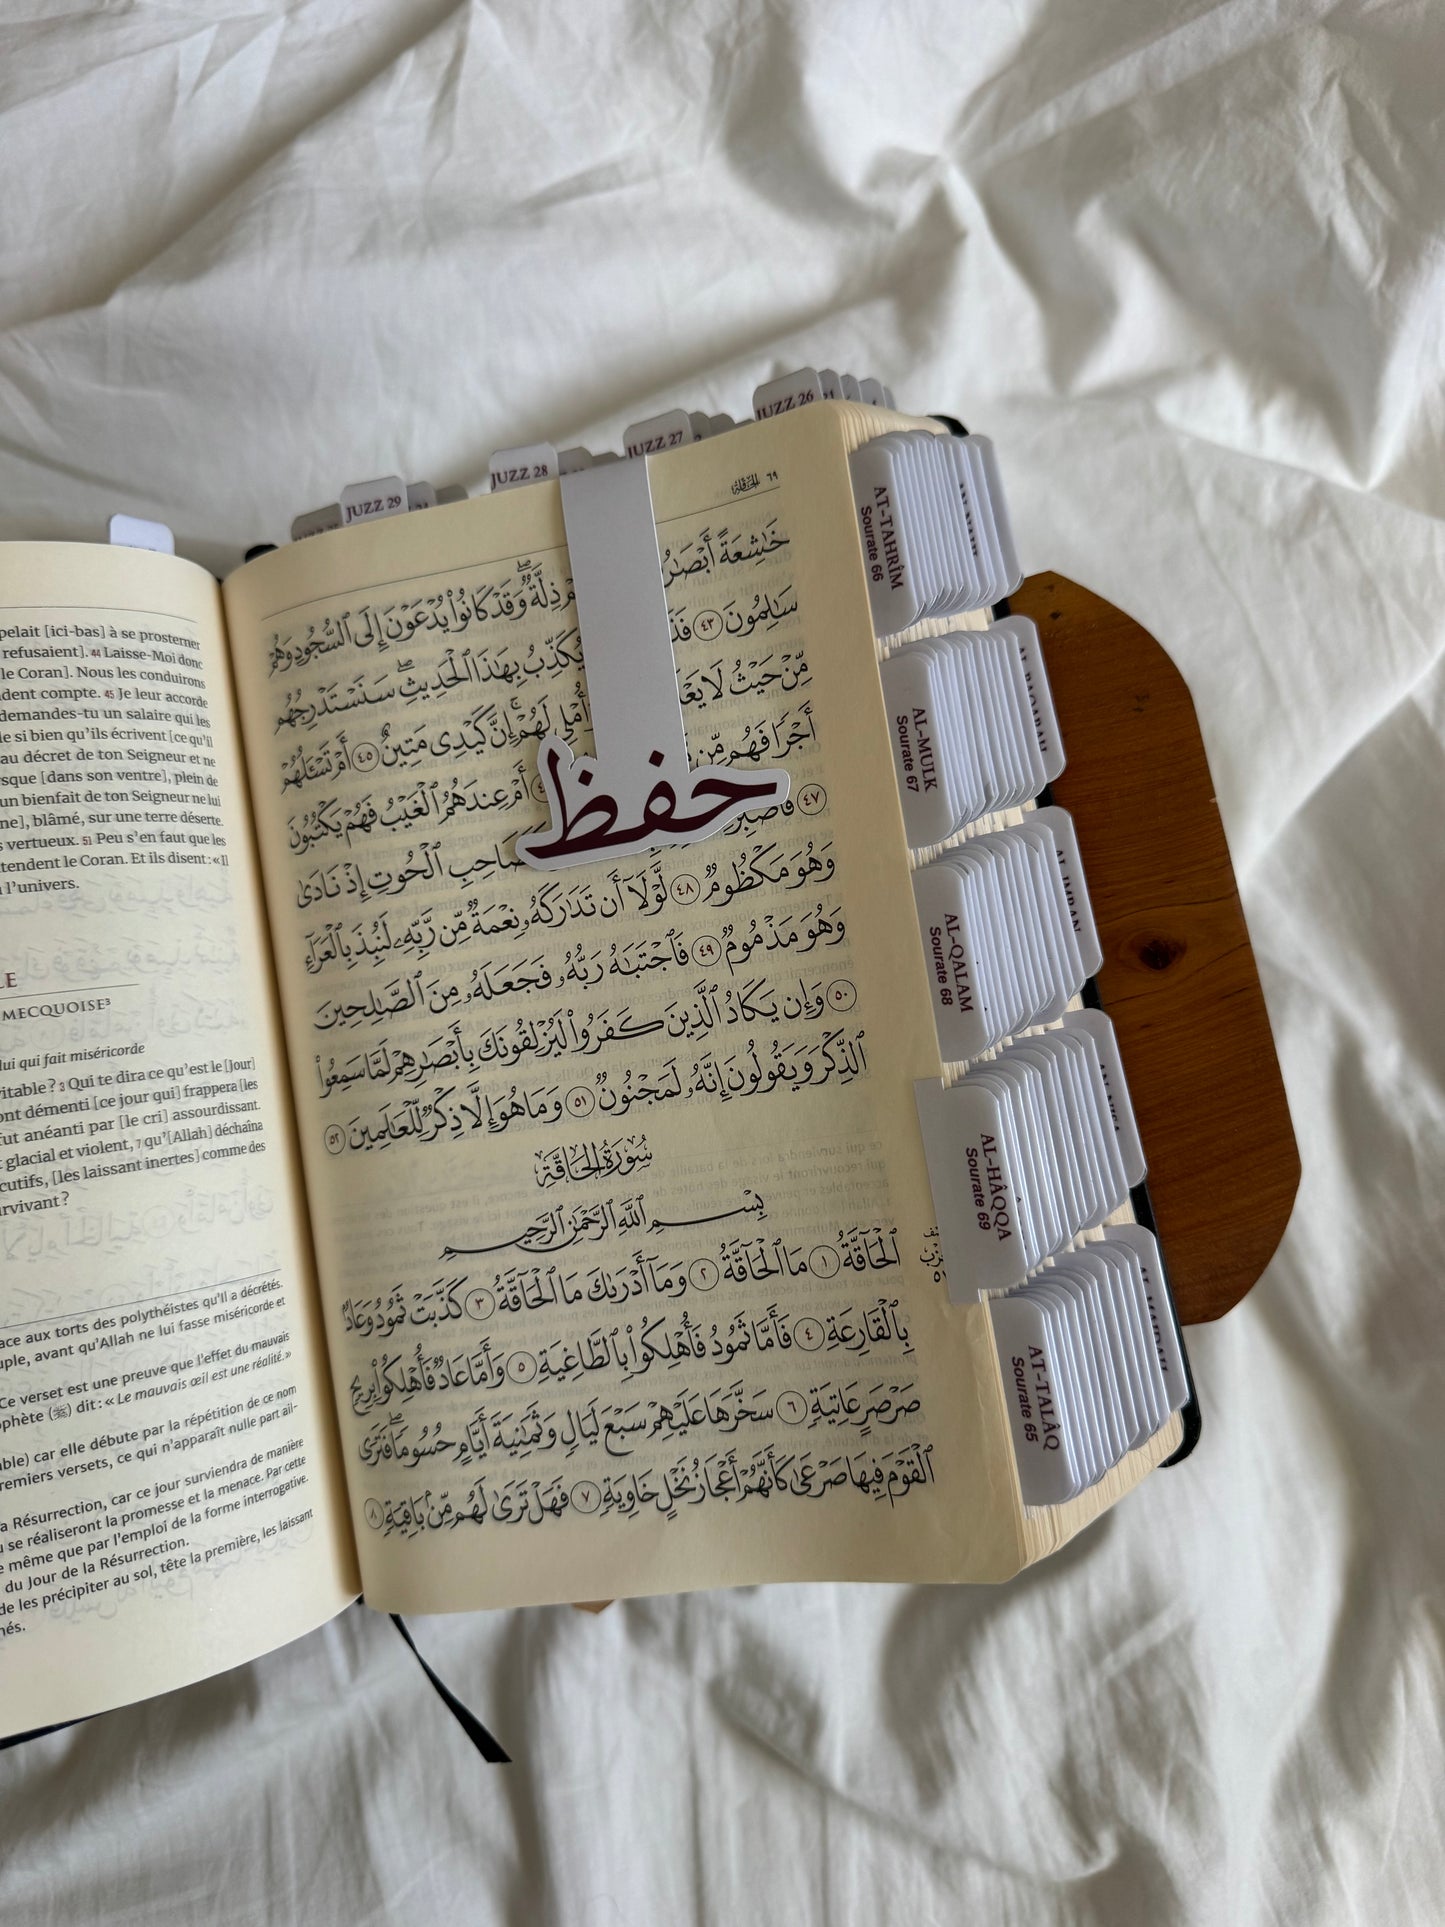 JUZZ 29
JUZZ 28
JUZZ 27
JUZZ 26
الحاقة ٦٩
خَٰشِعَةً أَبْصَٰرُ ذِلَّةٌ ۖ وَقَدْ كَانُوا۟ يُدْعَوْنَ إِلَى ٱلسُّجُودِ وَهُمْ
سَٰلِمُونَ ٤٣ يُكَذِّبُ بِهَٰذَا ٱلْحَدِيثِ ۖ سَنَسْتَدْرِجُهُم
مِّنْ حَيْثُ لَا أُمْلِى لَهُمْ ۚ إِنَّ كَيْدِى مَتِينٌ ٤٥ أَمْ تَسْـَٔلُهُمْ
أَجْرًا فَهُم مِّن أَمْ عِندَهُمُ ٱلْغَيْبُ فَهُمْ يَكْتُبُونَ
٤٧ فَٱصْبِرْ صَاحِبِ ٱلْحُوتِ إِذْ نَادَىٰ
وَهُوَ مَكْظُومٌ ٤٨ لَّوْلَآ أَن تَدَٰرَكَهُۥ نِعْمَةٌ مِّن رَّبِّهِۦ لَنُبِذَ بِٱلْعَرَآءِ
وَهُوَ مَذْمُومٌ ٤٩ فَٱجْتَبَٰهُ رَبُّهُۥ فَجَعَلَهُۥ مِنَ ٱلصَّٰلِحِينَ
٥٠ وَإِن يَكَادُ ٱلَّذِينَ كَفَرُوا۟ لَيُزْلِقُونَكَ بِأَبْصَٰرِهِمْ لَمَّا سَمِعُوا۟
ٱلذِّكْرَ وَيَقُولُونَ إِنَّهُۥ لَمَجْنُونٌ ٥١ وَمَا هُوَ إِلَّا ذِكْرٌ لِّلْعَٰلَمِينَ ٥٢
سُورَةُ الحَاقَّةِ
بِسْمِ ٱللَّهِ ٱلرَّحْمَٰنِ ٱلرَّحِيمِ
ٱلْحَآقَّةُ ١ مَا ٱلْحَآقَّةُ ٢ وَمَآ أَدْرَىٰكَ مَا ٱلْحَآقَّةُ ٣ كَذَّبَتْ ثَمُودُ وَعَادٌۢ
بِٱلْقَارِعَةِ ٤ فَأَمَّا ثَمُودُ فَأُهْلِكُوا۟ بِٱلطَّاغِيَةِ ٥ وَأَمَّا عَادٌ فَأُهْلِكُوا۟ بِرِيحٍ
صَرْصَرٍ عَاتِيَةٍ ٦ سَخَّرَهَا عَلَيْهِمْ سَبْعَ لَيَالٍ وَثَمَٰنِيَةَ أَيَّامٍ حُسُومًا ۖ فَتَرَى
ٱلْقَوْمَ فِيهَا صَرْعَىٰ كَأَنَّهُمْ أَعْجَازُ نَخْلٍ خَاوِيَةٍ ٧ فَهَلْ تَرَىٰ لَهُم مِّنۢ بَاقِيَةٍ ٨
حفظ
AT-TAHRÎM
Sourate 66
AL-MULK
Sourate 67
AL-QALAM
Sourate 68
AL-HÂQQA
Sourate 69
AT-TALÂQ
Sourate 65
AL-BAQARAH
AL-IMRAN
pelait [ici-bas] à se prosterner
refusaient]. 44 Laisse-Moi donc
le Coran]. Nous les conduirons
dent compte. 45 Je leur accorde
demandes-tu un salaire qui les
le si bien qu'ils écrivent [ce qu'il
au décret de ton Seigneur et ne
rsque [dans son ventre], plein de
un bienfait de ton Seigneur ne lui
ne], blâmé, sur une terre déserte.
s vertueux. 51 Peu s'en faut que les
tendent le Coran. Et ils disent : « Il
l'univers.
LE
MECQUOISE³
lui qui fait miséricorde
ritable ? 3 Qui te dira ce qu'est le [Jour]
ont démenti [ce jour qui] frappera [les
fut anéanti par [le cri] assourdissant.
t glacial et violent, 7 qu'[Allah] déchaîna
cutifs, [les laissant inertes] comme des
rvivant ?
ace aux torts des polythéistes qu'Il a décrétés.
uple, avant qu'Allah ne lui fasse miséricorde et
Ce verset est une preuve que l'effet du mauvais
ophète (ﷺ) dit : « Le mauvais œil est une réalité. »
able) car elle débute par la répétition de ce nom
premiers versets, ce qui n'apparaît nulle part ail-
a Résurrection, car ce jour surviendra de manière
u se réaliseront la promesse et la menace. Par cette
e même que par l'emploi de la forme interrogative.
du Jour de la Résurrection.
de les précipiter au sol, tête la première, les laissant
nés.